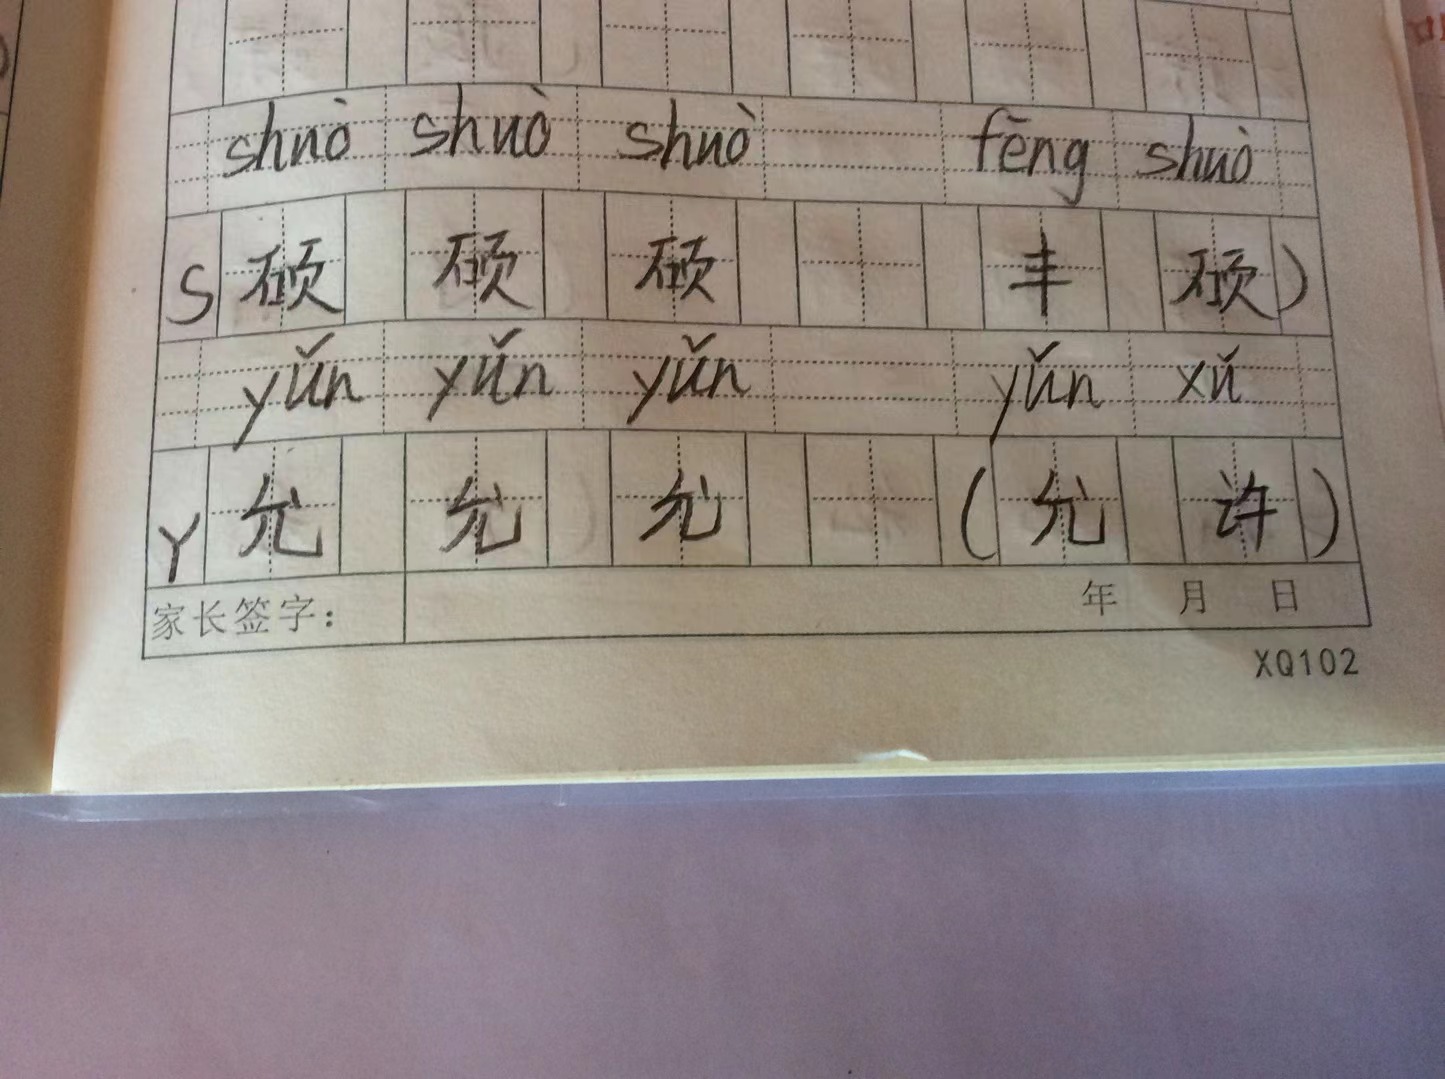 shuò shuò shuò fēng shuò
S 硕 硕 硕 丰 硕)
yǔn yǔn yǔn yǔn xǔ
Y 允 允 允 (允 许)
家长签字： 年 月 日
XQ102